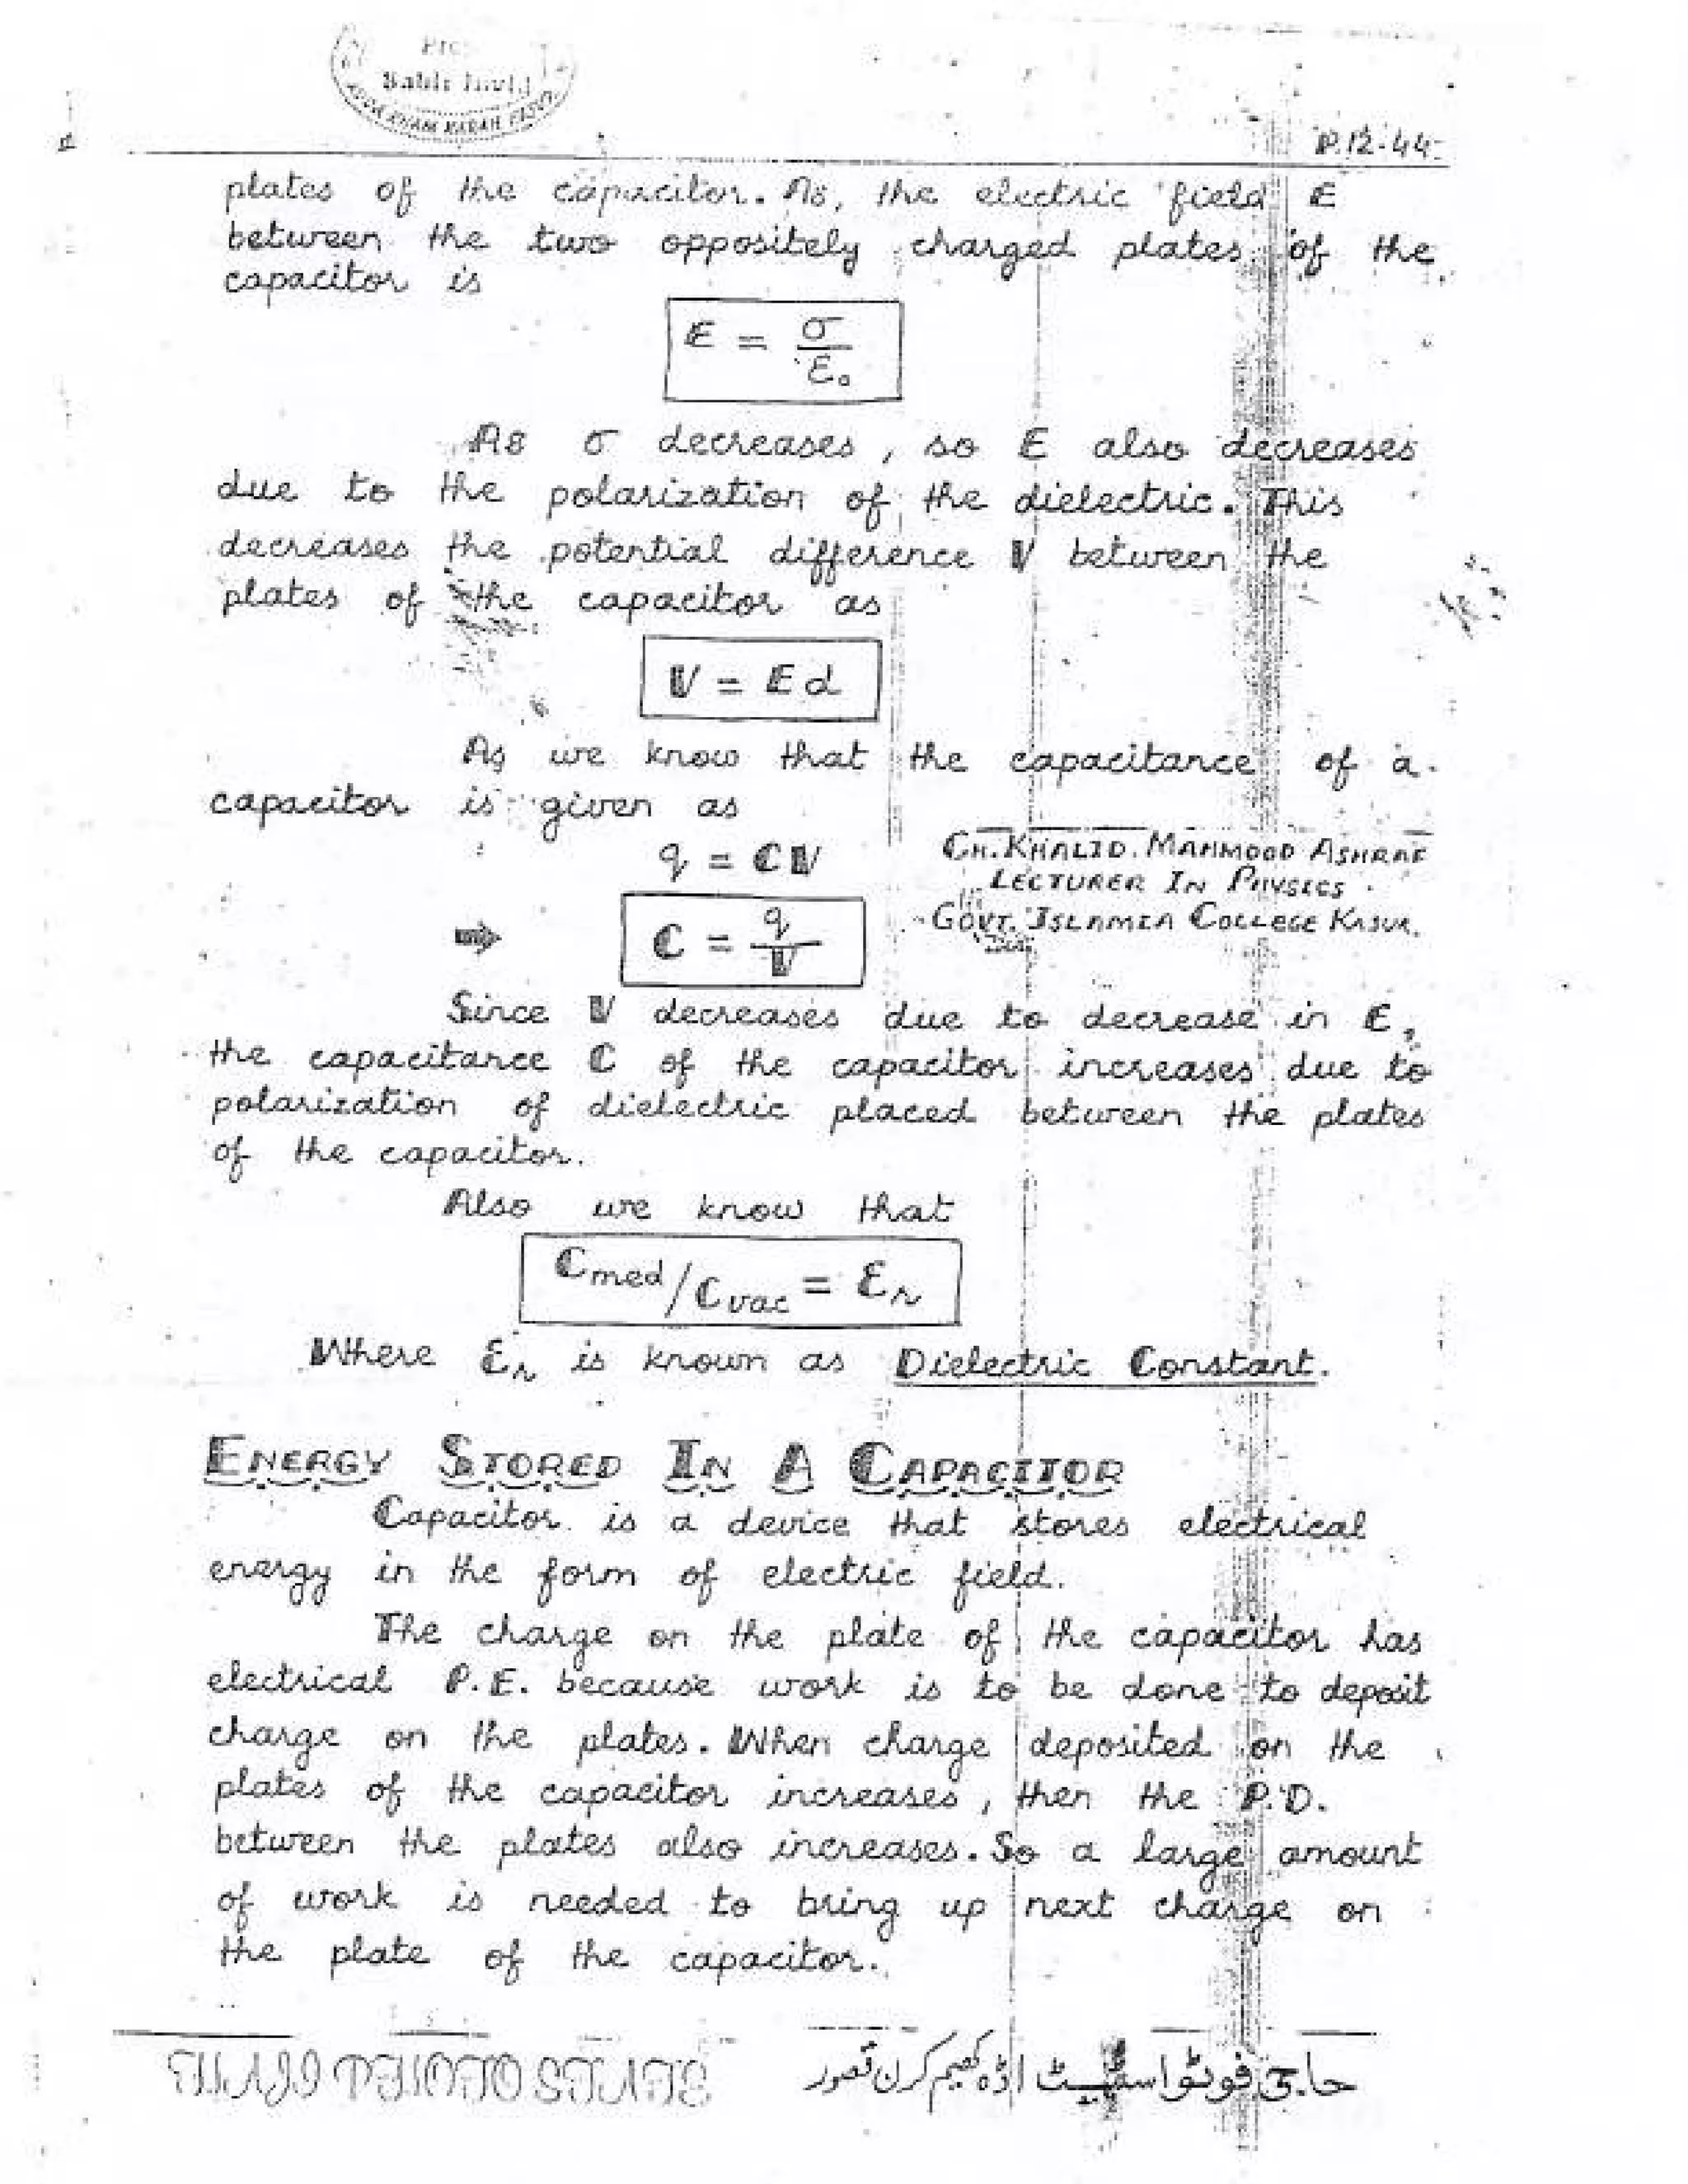 P.12-44
plates of the capacitor. As, the electric field E
between the two oppositely charged plates of the
capacitor is
E = σ/ε₀
As σ decreases, so E also decreases
due to the polarization of the dielectric. This
decreases the potential difference V between the
plates of the capacitor as
V = Ed
As we know that the capacitance of a
capacitor is given as
q = CV
CH. KHALID MAHMOOD ASHRAF
LECTURER IN PHYSICS
GOVT. ISLAMIA COLLEGE KASUR.
⇒ C = q/V
Since V decreases due to decrease in E,
the capacitance C of the capacitor increases due to
polarization of dielectric placed between the plates
of the capacitor.
Also we know that
Cmed/Cvac = εr
Where εr is known as Dielectric Constant.
ENERGY STORED IN A CAPACITOR
Capacitor is a device that stores electrical
energy in the form of electric field.
The charge on the plate of the capacitor has
electrical P.E. because work is to be done to deposit
charge on the plates. When charge deposited on the
plates of the capacitor increases, then the P.D.
between the plates also increases. So a large amount
of work is needed to bring up next charge on
the plate of the capacitor.
حاجی فوٹو اسٹیٹ اڈہ کھیم کرن قصور